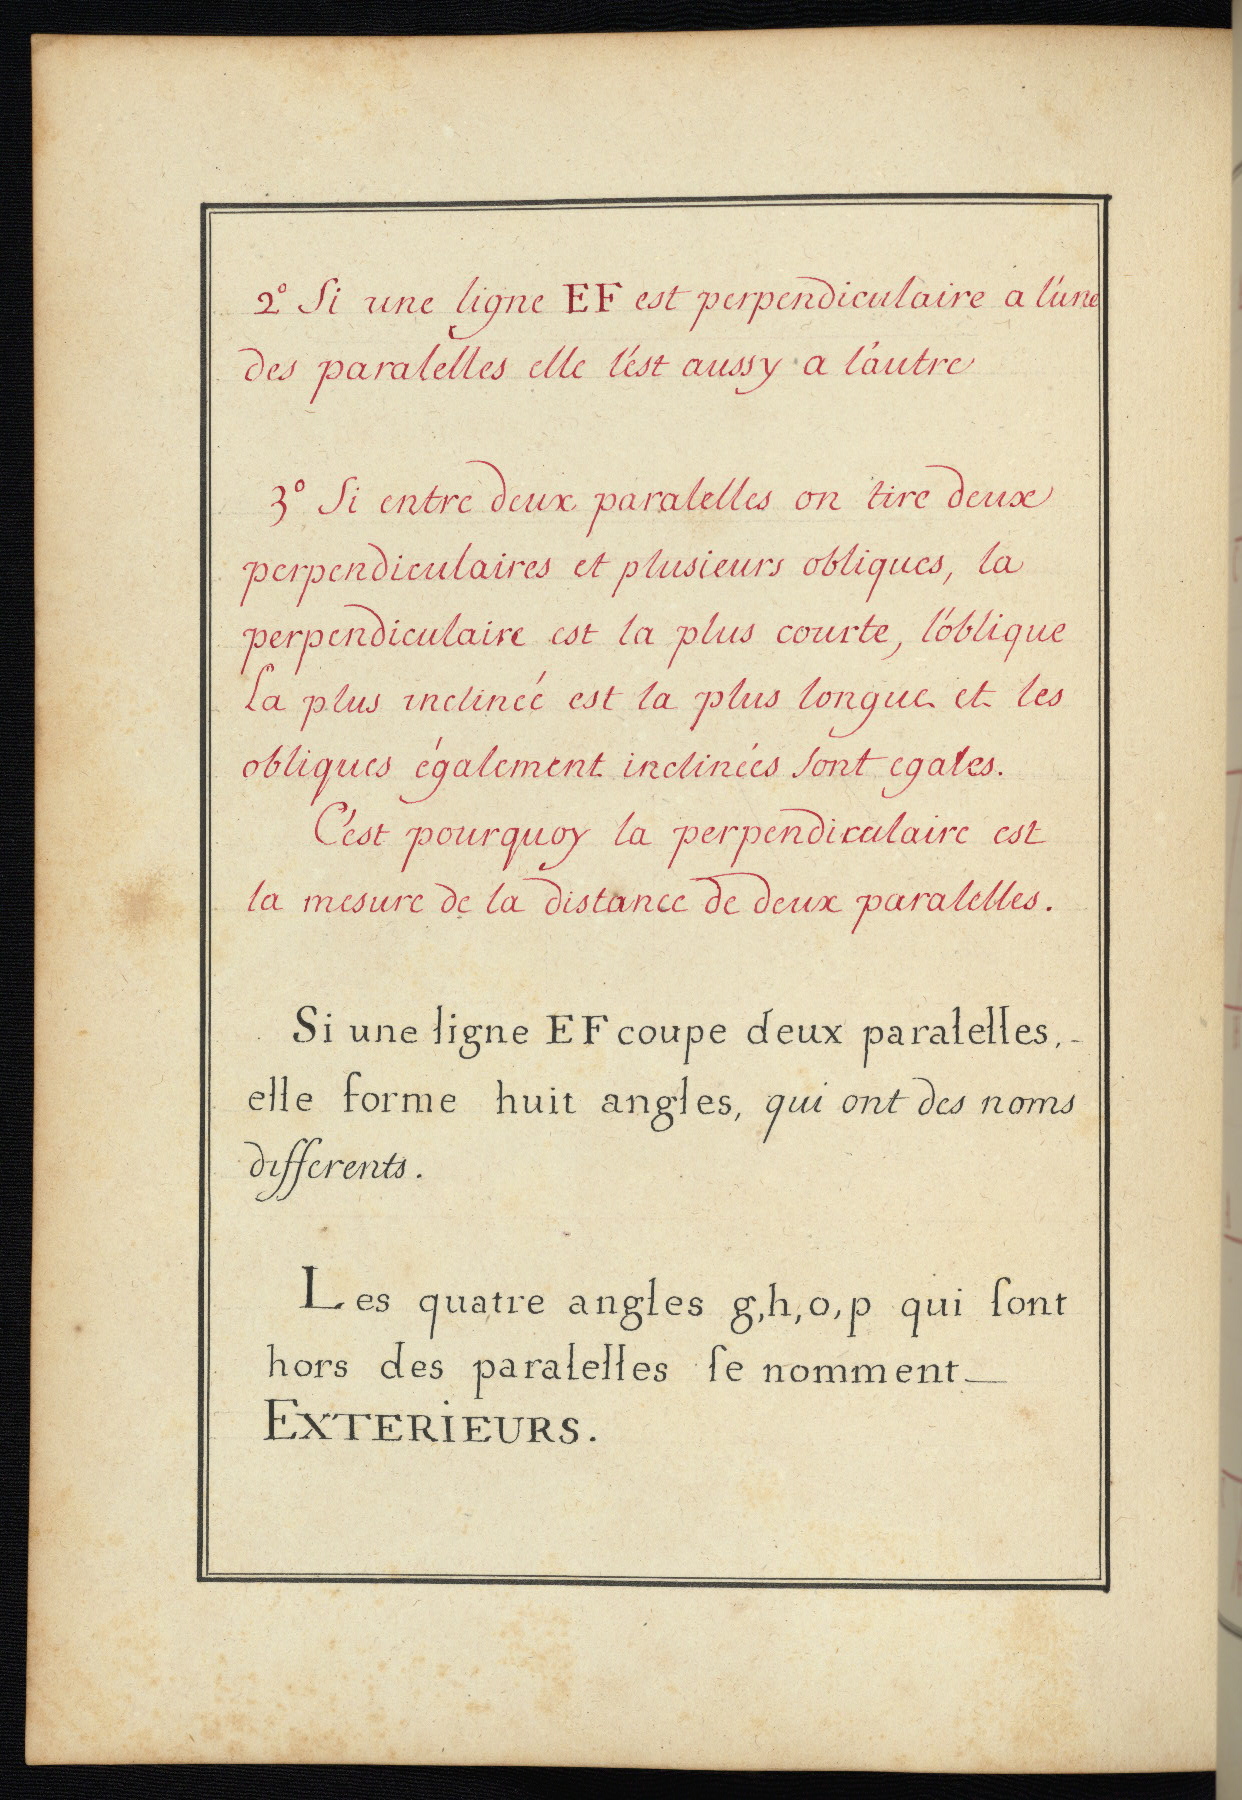 2° Si une ligne EF est perpendiculaire a l'une
des paralelles elle l'est aussy a l'autre
3° Si entre deux paralelles on tire deux
perpendiculaires et plusieurs obliques, la
perpendiculaire est la plus courte, l'oblique
La plus inclineé est la plus longue et les
obliques également inclinées sont egales.
C'est pourquoy la perpendiculaire est
la mesure de la distance de deux paralelles.
Si une ligne EF coupe deux paralelles, -
elle forme huit angles, qui ont des noms
differents.
Les quatre angles g,h,o,p qui ſont
hors des paralelles ſe nomment_
EXTERIEURS.